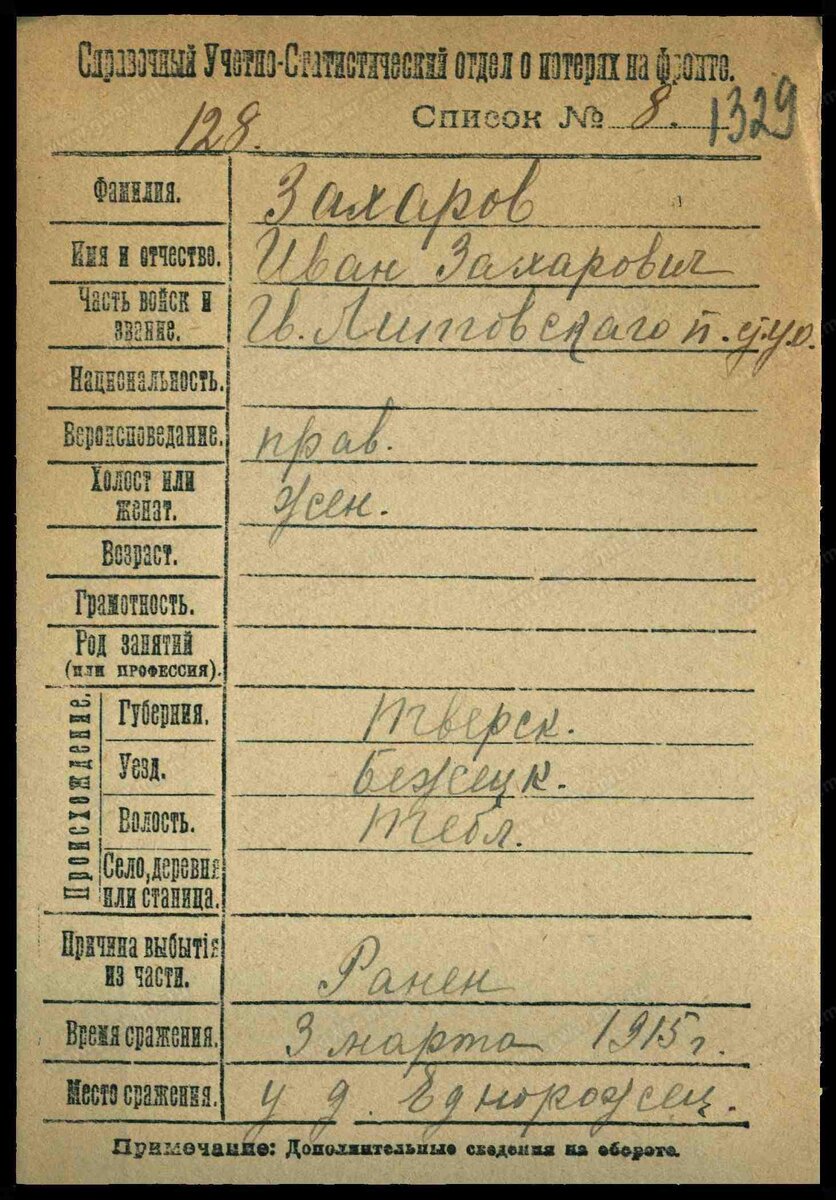 Справочный Учетно-Статистический отдел о потерях на фронте.
128. Список № 8. 1329
Фамилия. Захаров
Имя и отчество. Иван Захарович
Часть войск и звание. Гв. Литовского п.
Национальность.
Вероисповедание. прав.
Холост или женат. жен.
Возраст.
Грамотность.
Род занятий (или профессия).
Происхождение.
Губерния. Тверск.
Уезд. Бежецк.
Волость. Тебл.
Село, деревня или станица.
Причина выбытія из части. Ранен
Время сражения. 3 марта 1915 г.
Место сражения. у д. Еднорожец.
Примечание: Дополнительные сведения на обороте.